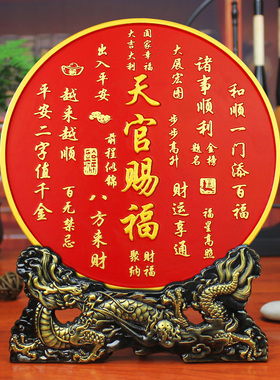 和顺一门添百福
诸事顺利
金榜
题名
福星高照
大展宏图
步步高升
财运亨通
国家幸福
大吉大利
天官赐福
财福
聚纳
出入平安
前程似锦
八方来财
越来越顺
百无禁忌
平安二字值千金